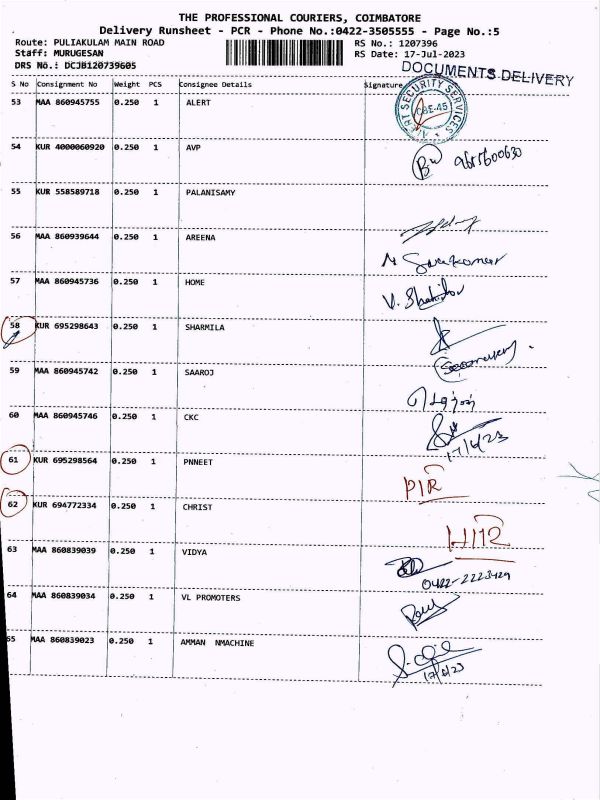 THE PROFESSIONAL COURIERS, COIMBATORE
Delivery Runsheet - PCR - Phone No.:0422-3505555 - Page No.:5
Route: PULIAKULAM MAIN ROAD RS No.: 1207396
Staff: MURUGESAN RS Date: 17-Jul-2023
DRS No.: DCJB120739605
DOCUMENTS DELIVERY
S No Consignment No Weight PCS Consignee Details Signature
53 MAA 860945755 0.250 1 ALERT
ALERT SECURITY SERVICES
CBE-45
54 KUR 4000060920 0.250 1 AVP
55 KUR 558589718 0.250 1 PALANISAMY
56 MAA 860939644 0.250 1 AREENA
57 MAA 860945736 0.250 1 HOME
58 KUR 695298643 0.250 1 SHARMILA
59 MAA 860945742 0.250 1 SAAROJ
60 MAA 860945746 0.250 1 CKC
17/6/23
61 KUR 695298564 0.250 1 PNNEET
PIR
62 KUR 694772334 0.250 1 CHRIST
63 MAA 860839039 0.250 1 VIDYA
0422-2223429
64 MAA 860839034 0.250 1 VL PROMOTERS
65 MAA 860839023 0.250 1 AMMAN NMACHINE
17/6/23